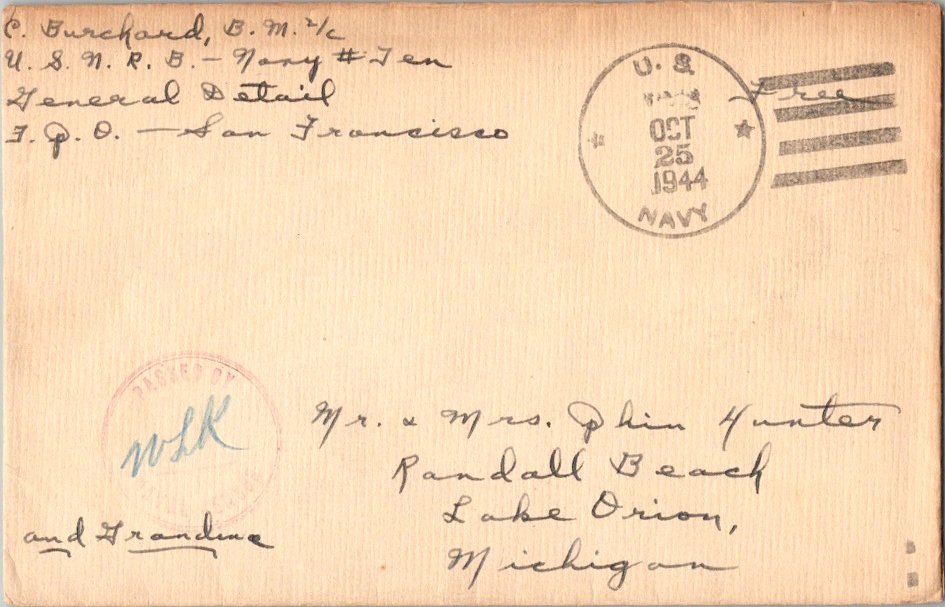 C. Burchard, B. M. 2/c
U. S. N. R. B. - Navy # Ten
General Detail
F. P. O. - San Francisco
U. S.
OCT
25
1944
NAVY
Free
PASSED BY
WLK
NAVAL CENSOR
Mr. & Mrs. Phin Hunter
Randall Beach
Lake Orion,
Michigan
and Grandma